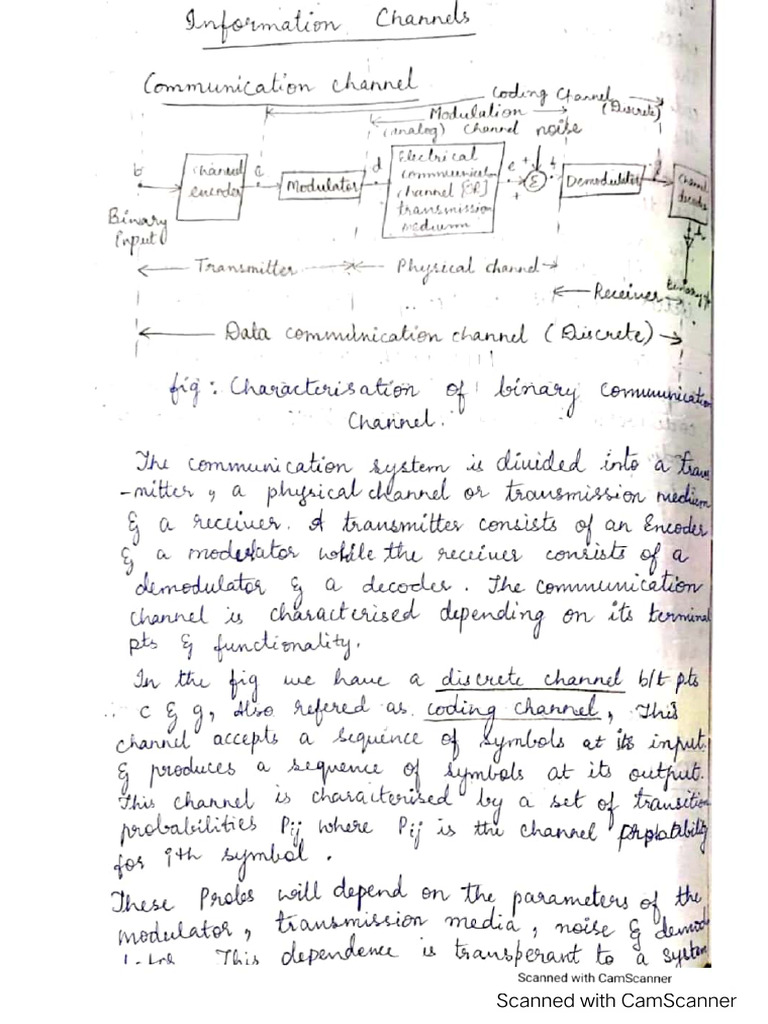 Information Channels
Communication channel
Coding Channel
(Discrete)
Modulation
(analog) channel noise
b
Channel
encoder
c
Modulator
d
Electrical
communical
channel [OR]
transmission
medium
e
+
+
Σ
f
Demodulator
g
Channel
decoder
Binary
Input
Transmitter
Physical channel
Receiver
Data communication channel (Discrete)
fig: Characterisation of binary communication
Channel.
The communication system is divided into a trans
-mitter, a physical channel or transmission medium
& a receiver. A transmitter consists of an Encoder
& a modulator while the receiver consists of a
demodulator & a decoder. The communication
channel is characterised depending on its terminal
pts & functionality.
In the fig we have a discrete channel b/t pts
c & g, also refered as coding channel, This
channel accepts a sequence of symbols at its input
& produces a sequence of symbols at its output.
This channel is characterised by a set of transition
probabilities Pij where Pij is the channel
for ith symbol.
These Probs will depend on the parameters of the
modulator, transmission media, noise & demod
This dependence is transperant to a system
Scanned with CamScanner
Scanned with CamScanner